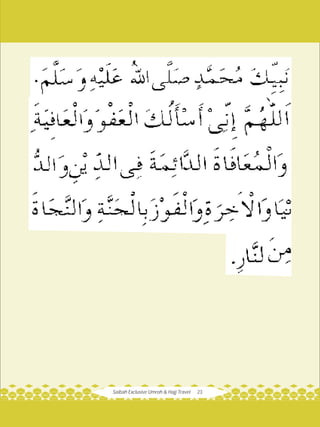 نَبِيِّكَ مُحَمَّدٍ صَلَّى اللهُ عَلَيْهِ وَسَلَّمَ.
اَللّٰهُمَّ إِنِّىْ أَسْأَلُكَ الْعَفْوَ وَالْعَافِيَةَ
وَالْمُعَافَاةَ الدَّائِمَةَ فِى الدِّيْنِ وَالدُّ
نْيَا وَالْاَخِرَةِ وَالْفَوْزَ بِالْجَنَّةِ وَالنَّجَاةَ
مِنَ لنَّارِ.
Saibah Exclusive Umroh & Hajj Travel 23